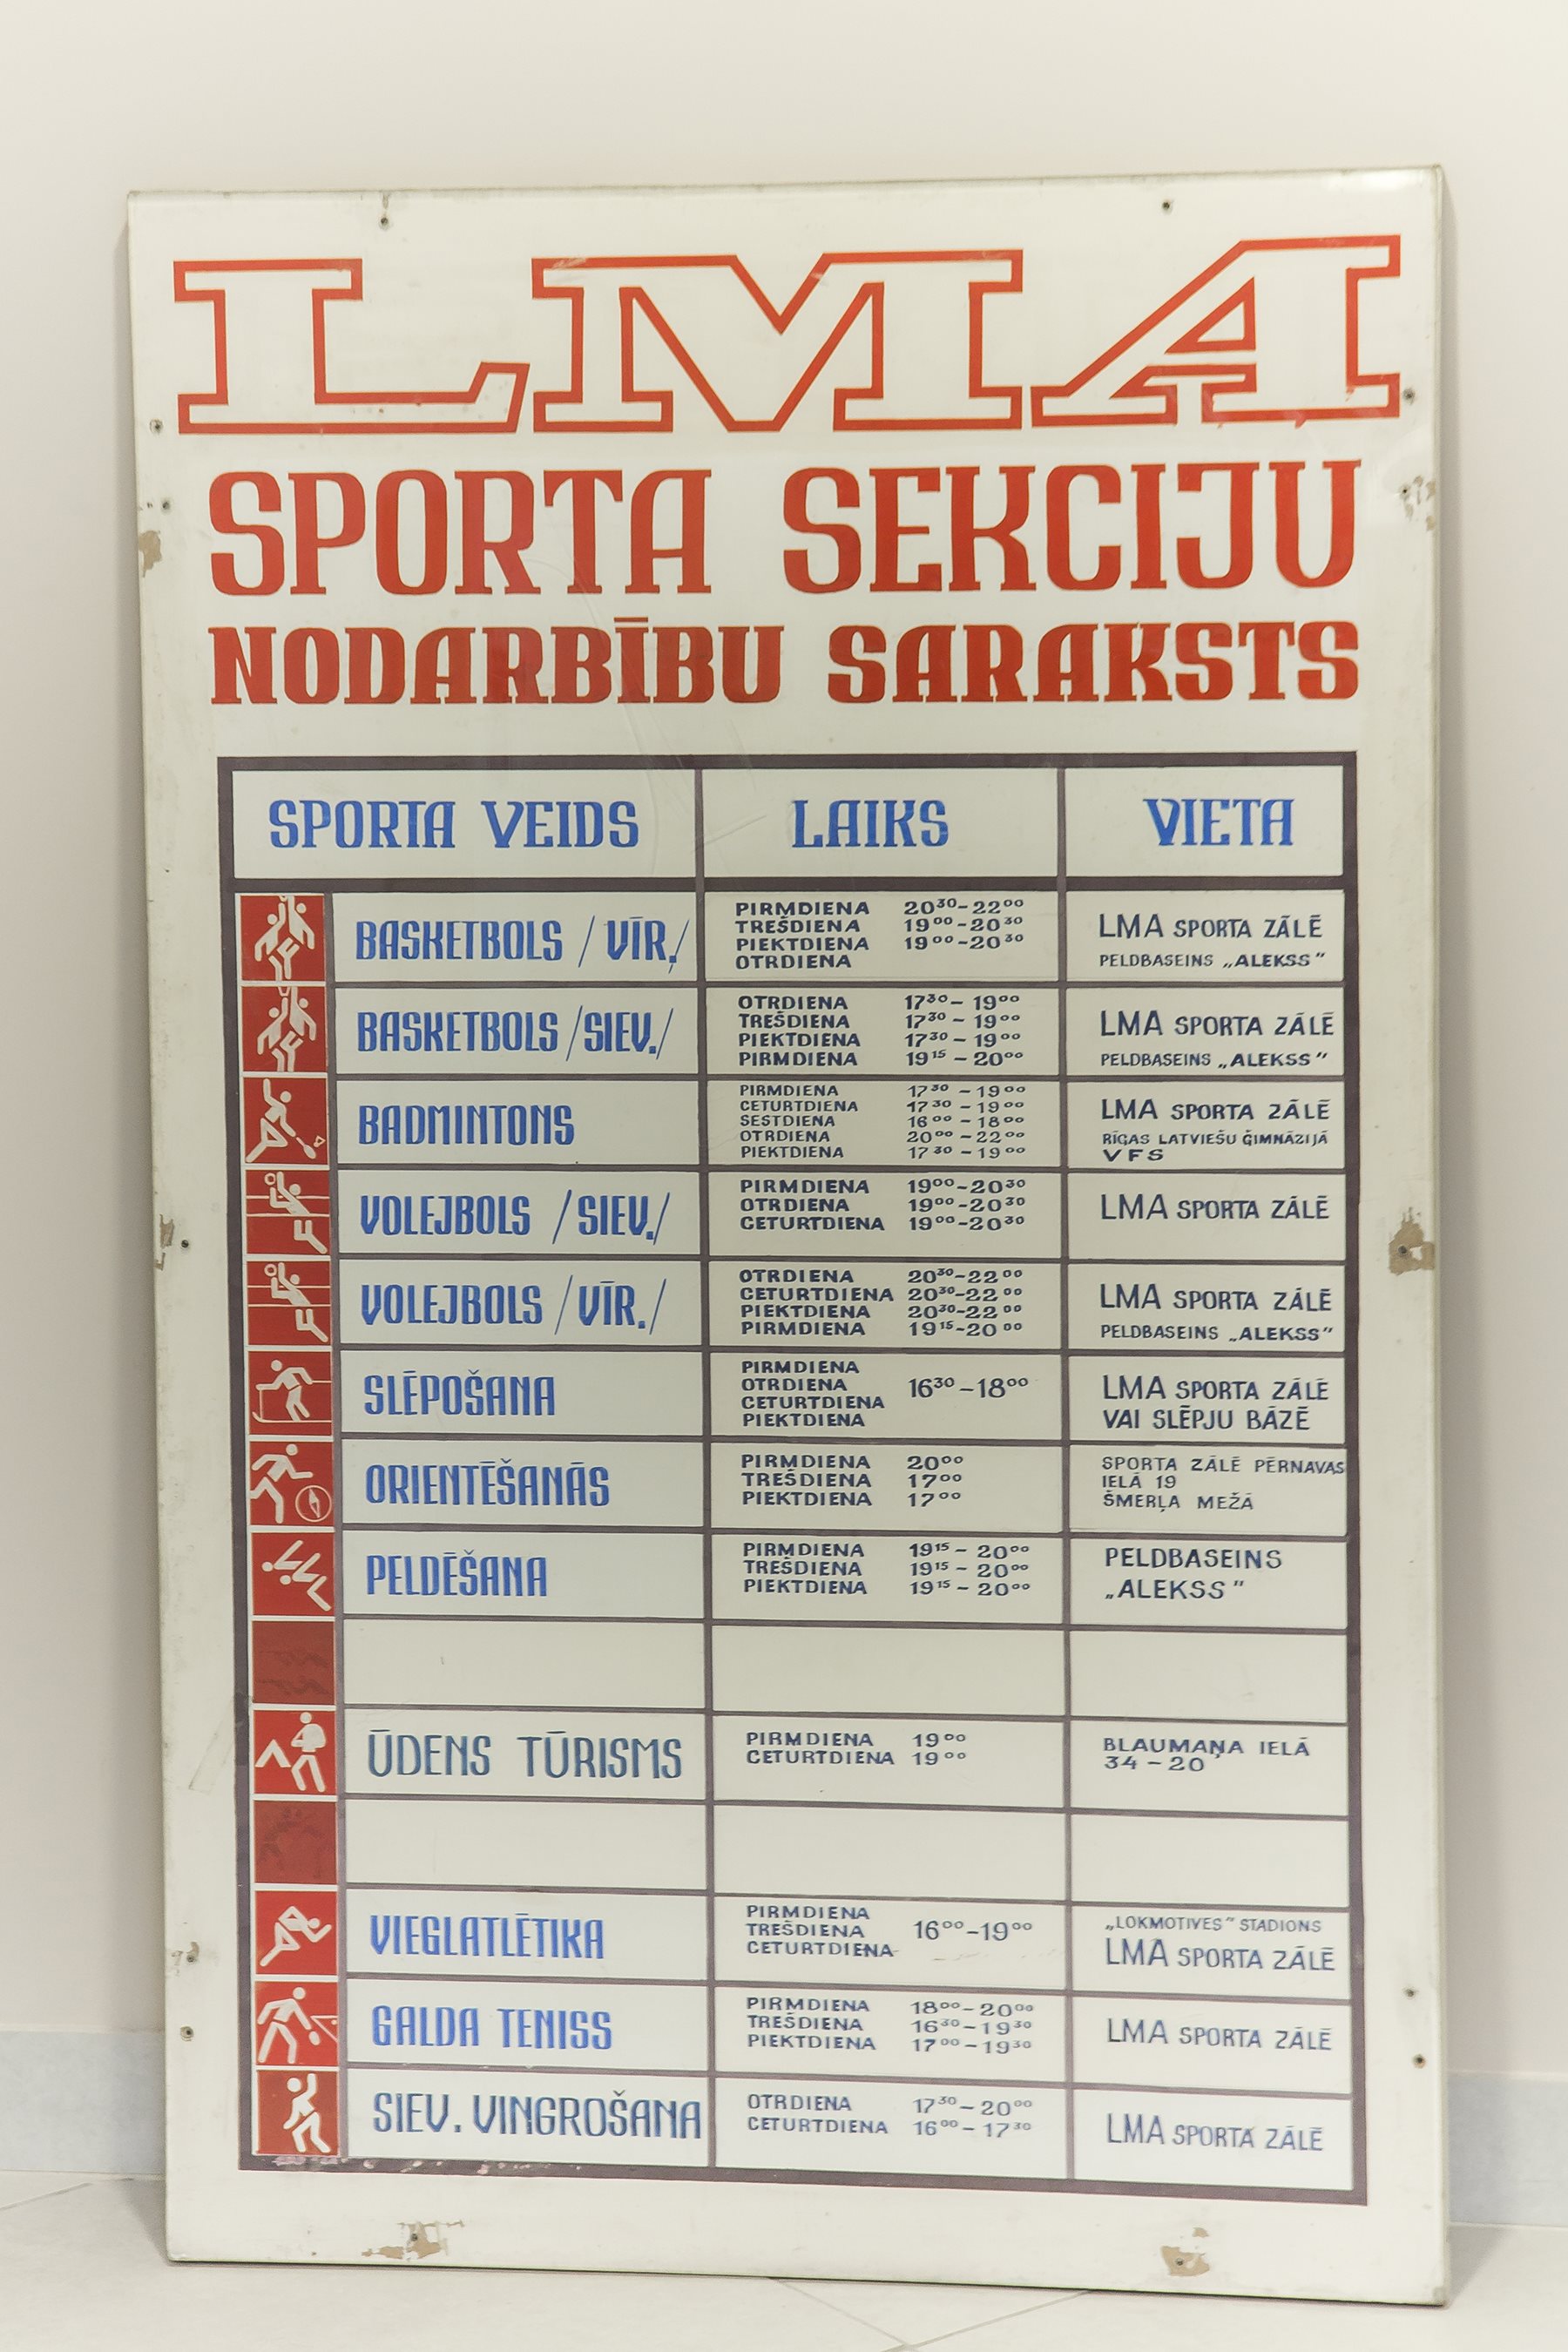 LMA
SPORTA SEKCIJU
NODARBĪBU SARAKSTS
SPORTA VEIDS LAIKS VIETA
BASKETBOLS /VĪR./
PIRMDIENA 20³⁰-22⁰⁰
TREŠDIENA 19⁰⁰-20³⁰
PIEKTDIENA 19⁰⁰-20³⁰
OTRDIENA
LMA SPORTA ZĀLĒ
PELDBASEINS „ALEKSS"
BASKETBOLS /SIEV./
OTRDIENA 17³⁰-19⁰⁰
TREŠDIENA 17³⁰-19⁰⁰
PIEKTDIENA 17³⁰-19⁰⁰
PIRMDIENA 19¹⁵-20⁰⁰
LMA SPORTA ZĀLĒ
PELDBASEINS „ALEKSS"
BADMINTONS
PIRMDIENA 17³⁰-19⁰⁰
CETURTDIENA 17³⁰-19⁰⁰
SESTDIENA 16⁰⁰-18⁰⁰
OTRDIENA 20⁰⁰-22⁰⁰
PIEKTDIENA 17³⁰-19⁰⁰
LMA SPORTA ZĀLĒ
RĪGAS LATVIEŠU ĢIMNĀZIJĀ
VFS
VOLEJBOLS /SIEV./
PIRMDIENA 19⁰⁰-20³⁰
OTRDIENA 19⁰⁰-20³⁰
CETURTDIENA 19⁰⁰-20³⁰
LMA SPORTA ZĀLĒ
VOLEJBOLS /VĪR./
OTRDIENA 20³⁰-22⁰⁰
CETURTDIENA 20³⁰-22⁰⁰
PIEKTDIENA 20³⁰-22⁰⁰
PIRMDIENA 19¹⁵-20⁰⁰
LMA SPORTA ZĀLĒ
PELDBASEINS „ALEKSS"
SLĒPOŠANA
PIRMDIENA
OTRDIENA 16³⁰-18⁰⁰
CETURTDIENA
PIEKTDIENA
LMA SPORTA ZĀLĒ
VAI SLĒPJU BĀZĒ
ORIENTĒŠANĀS
PIRMDIENA 20⁰⁰
TREŠDIENA 17⁰⁰
PIEKTDIENA 17⁰⁰
SPORTA ZĀLĒ PĒRNAVAS
IELĀ 19
ŠMERĻA MEŽĀ
PELDĒŠANA
PIRMDIENA 19¹⁵-20⁰⁰
TREŠDIENA 19¹⁵-20⁰⁰
PIEKTDIENA 19¹⁵-20⁰⁰
PELDBASEINS
„ALEKSS"
ŪDENS TŪRISMS
PIRMDIENA 19⁰⁰
CETURTDIENA 19⁰⁰
BLAUMAŅA IELĀ
34-20
VIEGLATLĒTIKA
PIRMDIENA
TREŠDIENA 16⁰⁰-19⁰⁰
CETURTDIENA
„LOKMOTIVES" STADIONS
LMA SPORTA ZĀLĒ
GALDA TENISS
PIRMDIENA 18⁰⁰-20⁰⁰
TREŠDIENA 16³⁰-19³⁰
PIEKTDIENA 17⁰⁰-19³⁰
LMA SPORTA ZĀLĒ
SIEV. VINGROŠANA
OTRDIENA 17³⁰-20⁰⁰
CETURTDIENA 16⁰⁰-17³⁰
LMA SPORTA ZĀLĒ